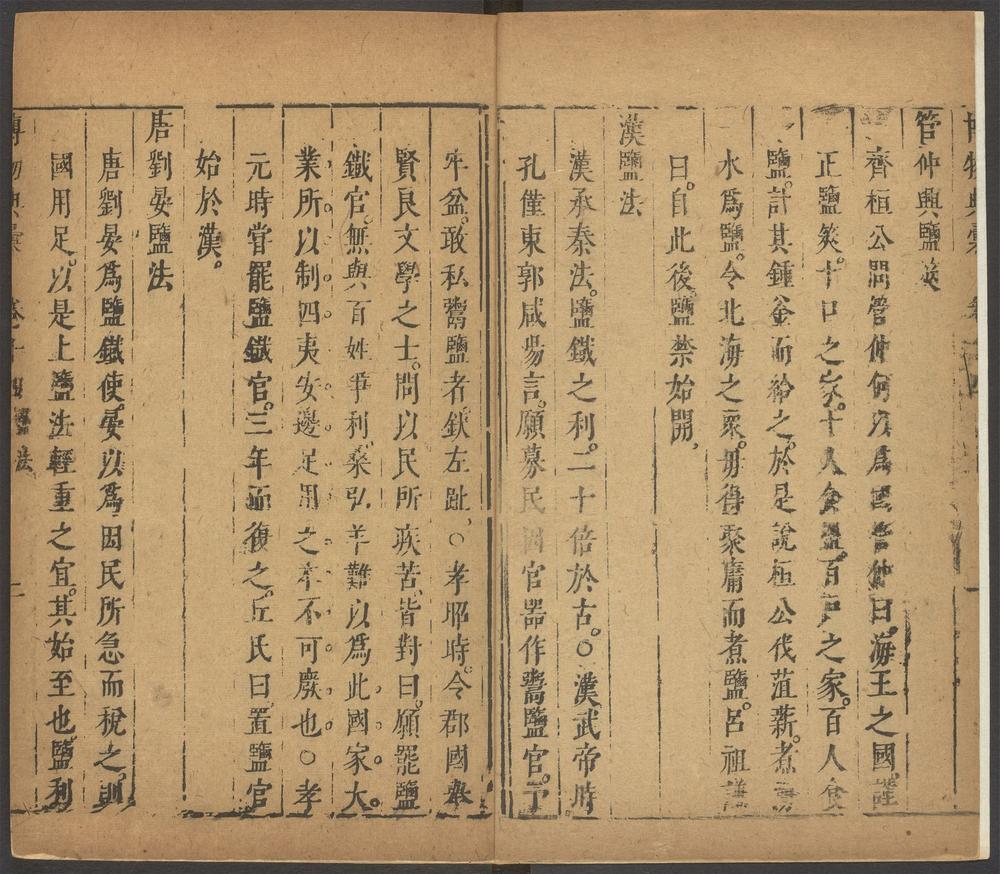 博物典彙
管仲興鹽筴
齊桓公問管仲何以為國管仲曰海王之國謹
正鹽筴。十口之家。十人食鹽。百戶之家。百人食
鹽。計其鍾釜而給之。於是說桓公伐菹薪。煮
水爲鹽。令北海之衆。毋得聚庸而煮鹽。呂祖謙
曰。自此後。鹽禁始開、
漢鹽法
漢承秦法。鹽鐵之利。二十倍於古。○漢武帝時
孔僅東郭咸陽言。願募民因官器作鬻鹽官。予
牢盆。敢私鬻鹽者。釱左趾、○孝昭時。令郡國舉
賢良文學之士。問以民所疾苦。皆對曰。願罷鹽
鐵官。無與百姓爭利。桑弘羊難以爲此國家大。
業所以制四夷安邊足用之本不可廢也○孝
元時嘗罷鹽鐵官。三年而復之。丘氏曰。置鹽官
始於漢。
唐劉晏鹽法
唐劉晏爲鹽鐵使。晏以爲因民所急而稅之。則
國用足。以是上鹽法輕重之宜。其始至也。鹽利
博物典彙 卷十四 鹽法 二